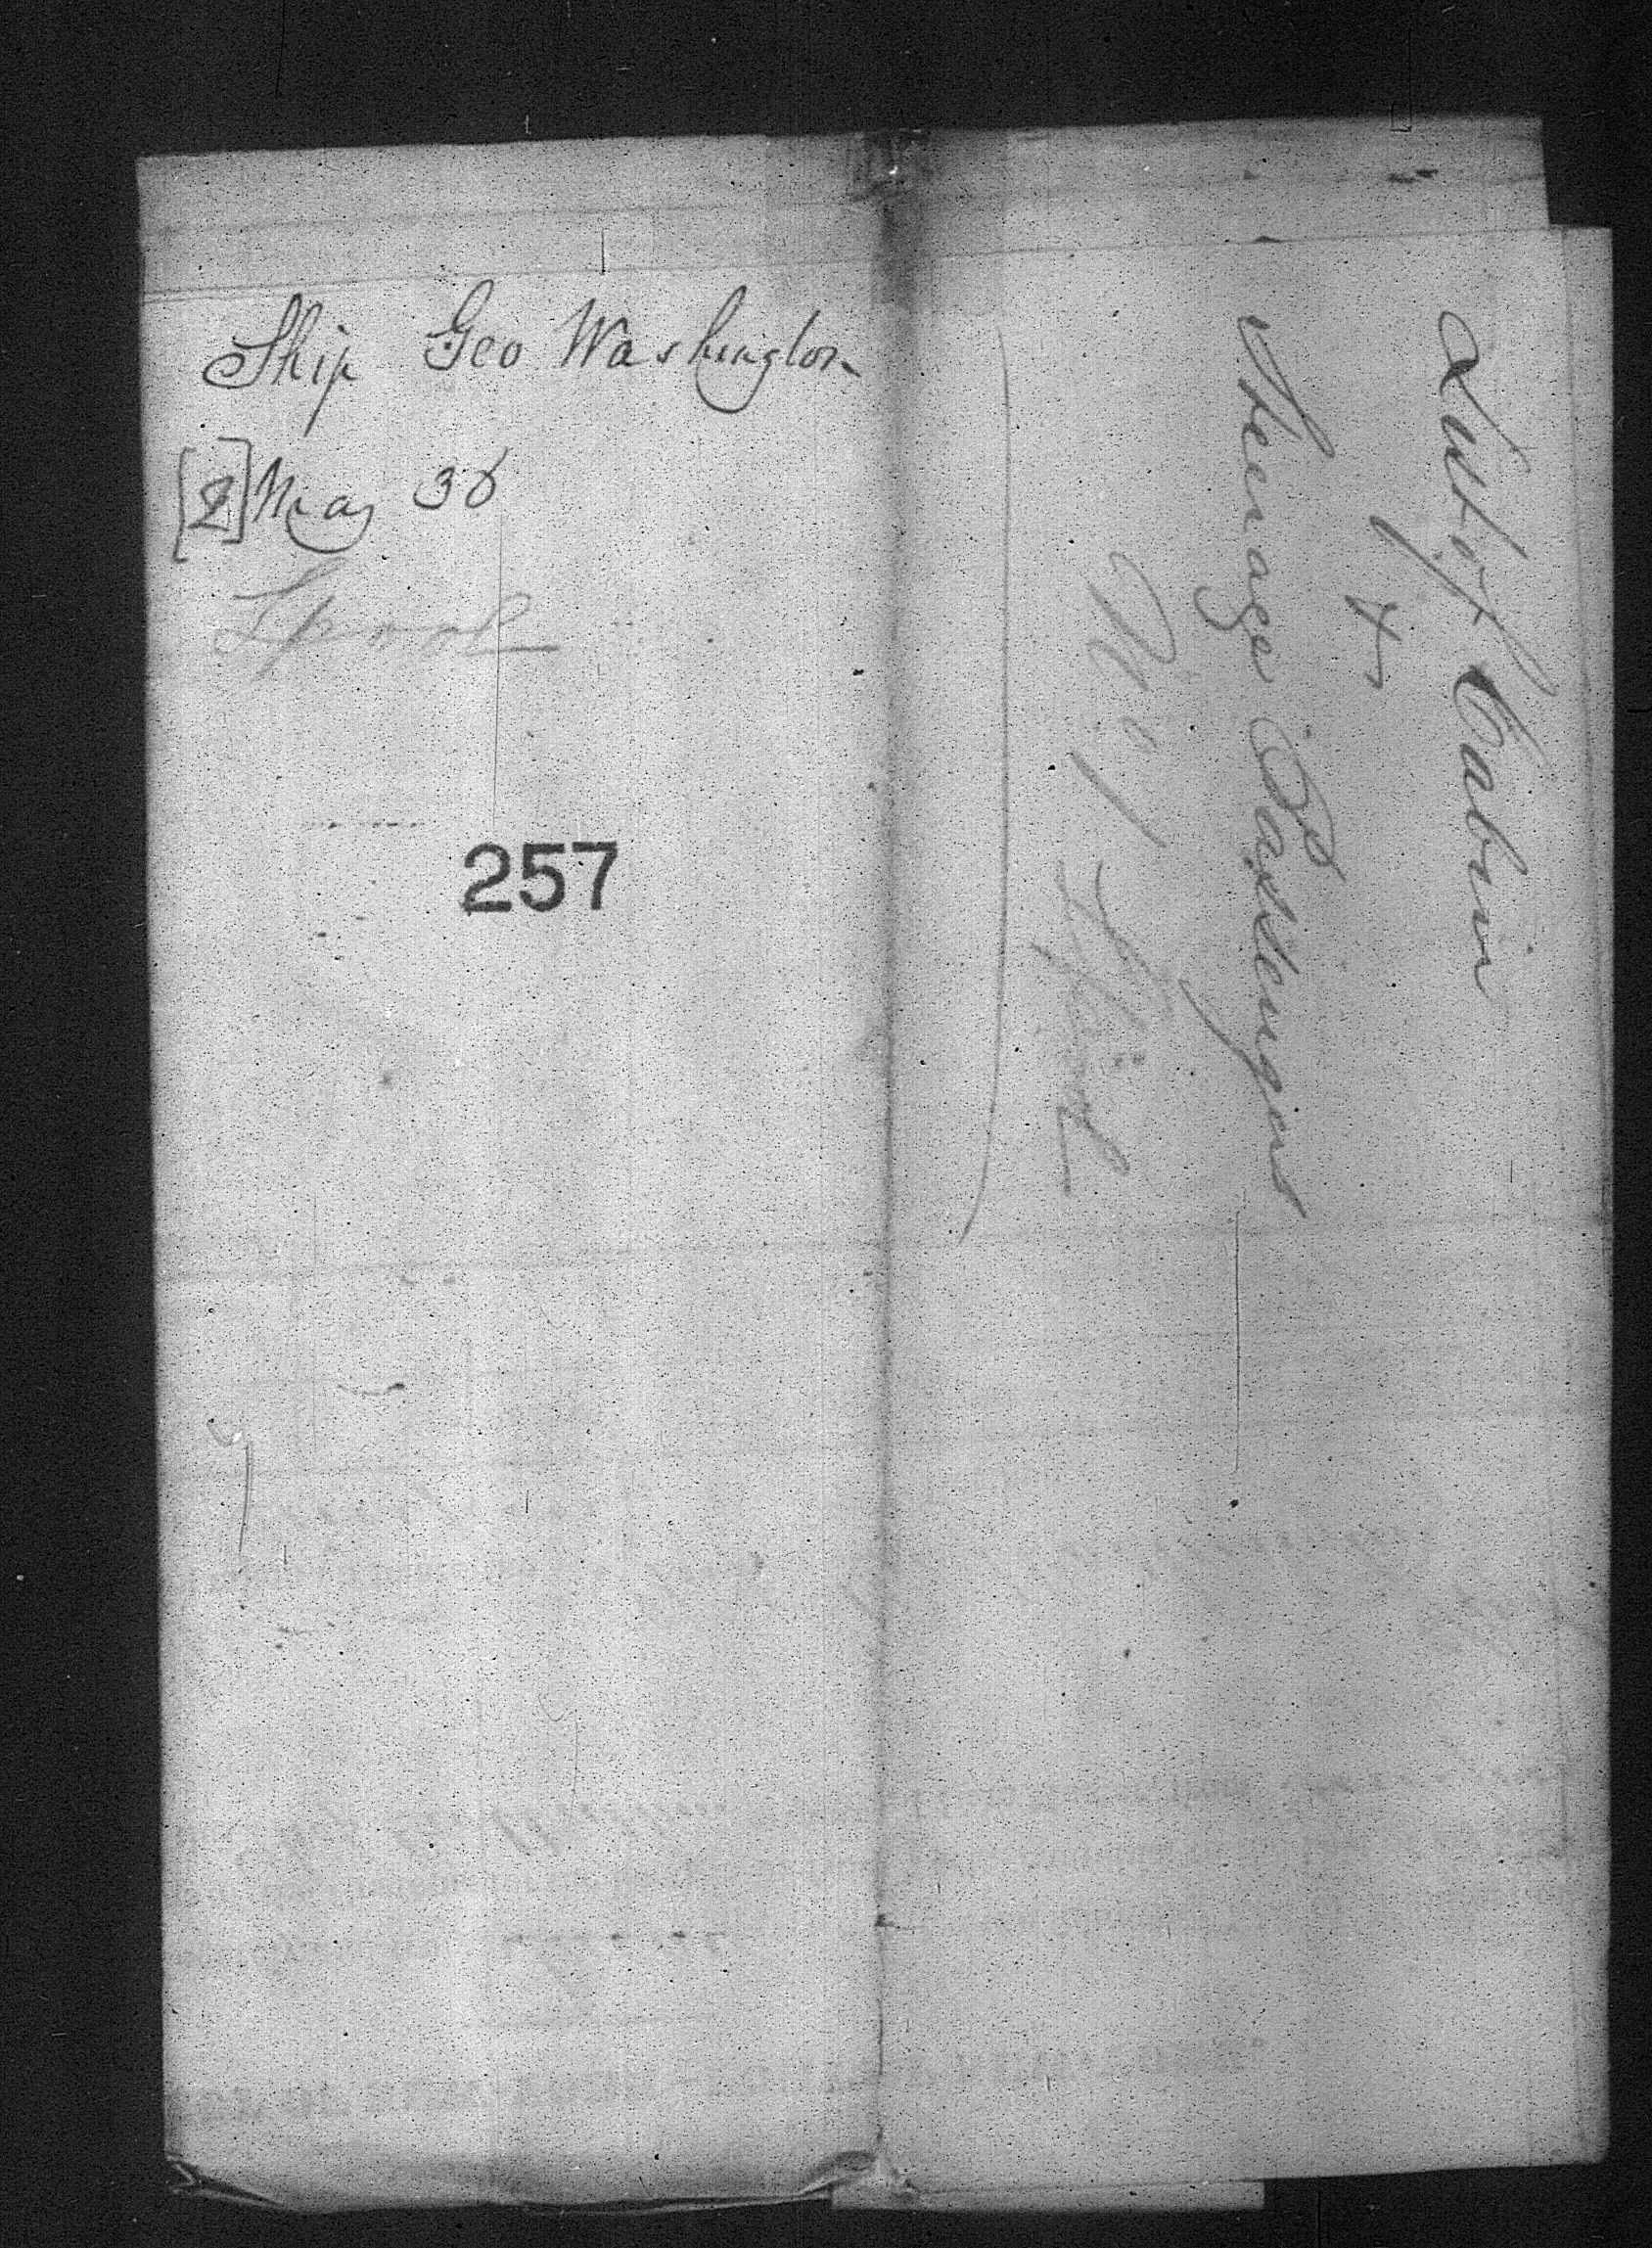 Ship Geo Washington
[2] May 30
Lpool
257
List of Cabin
&
Steerage Passengers